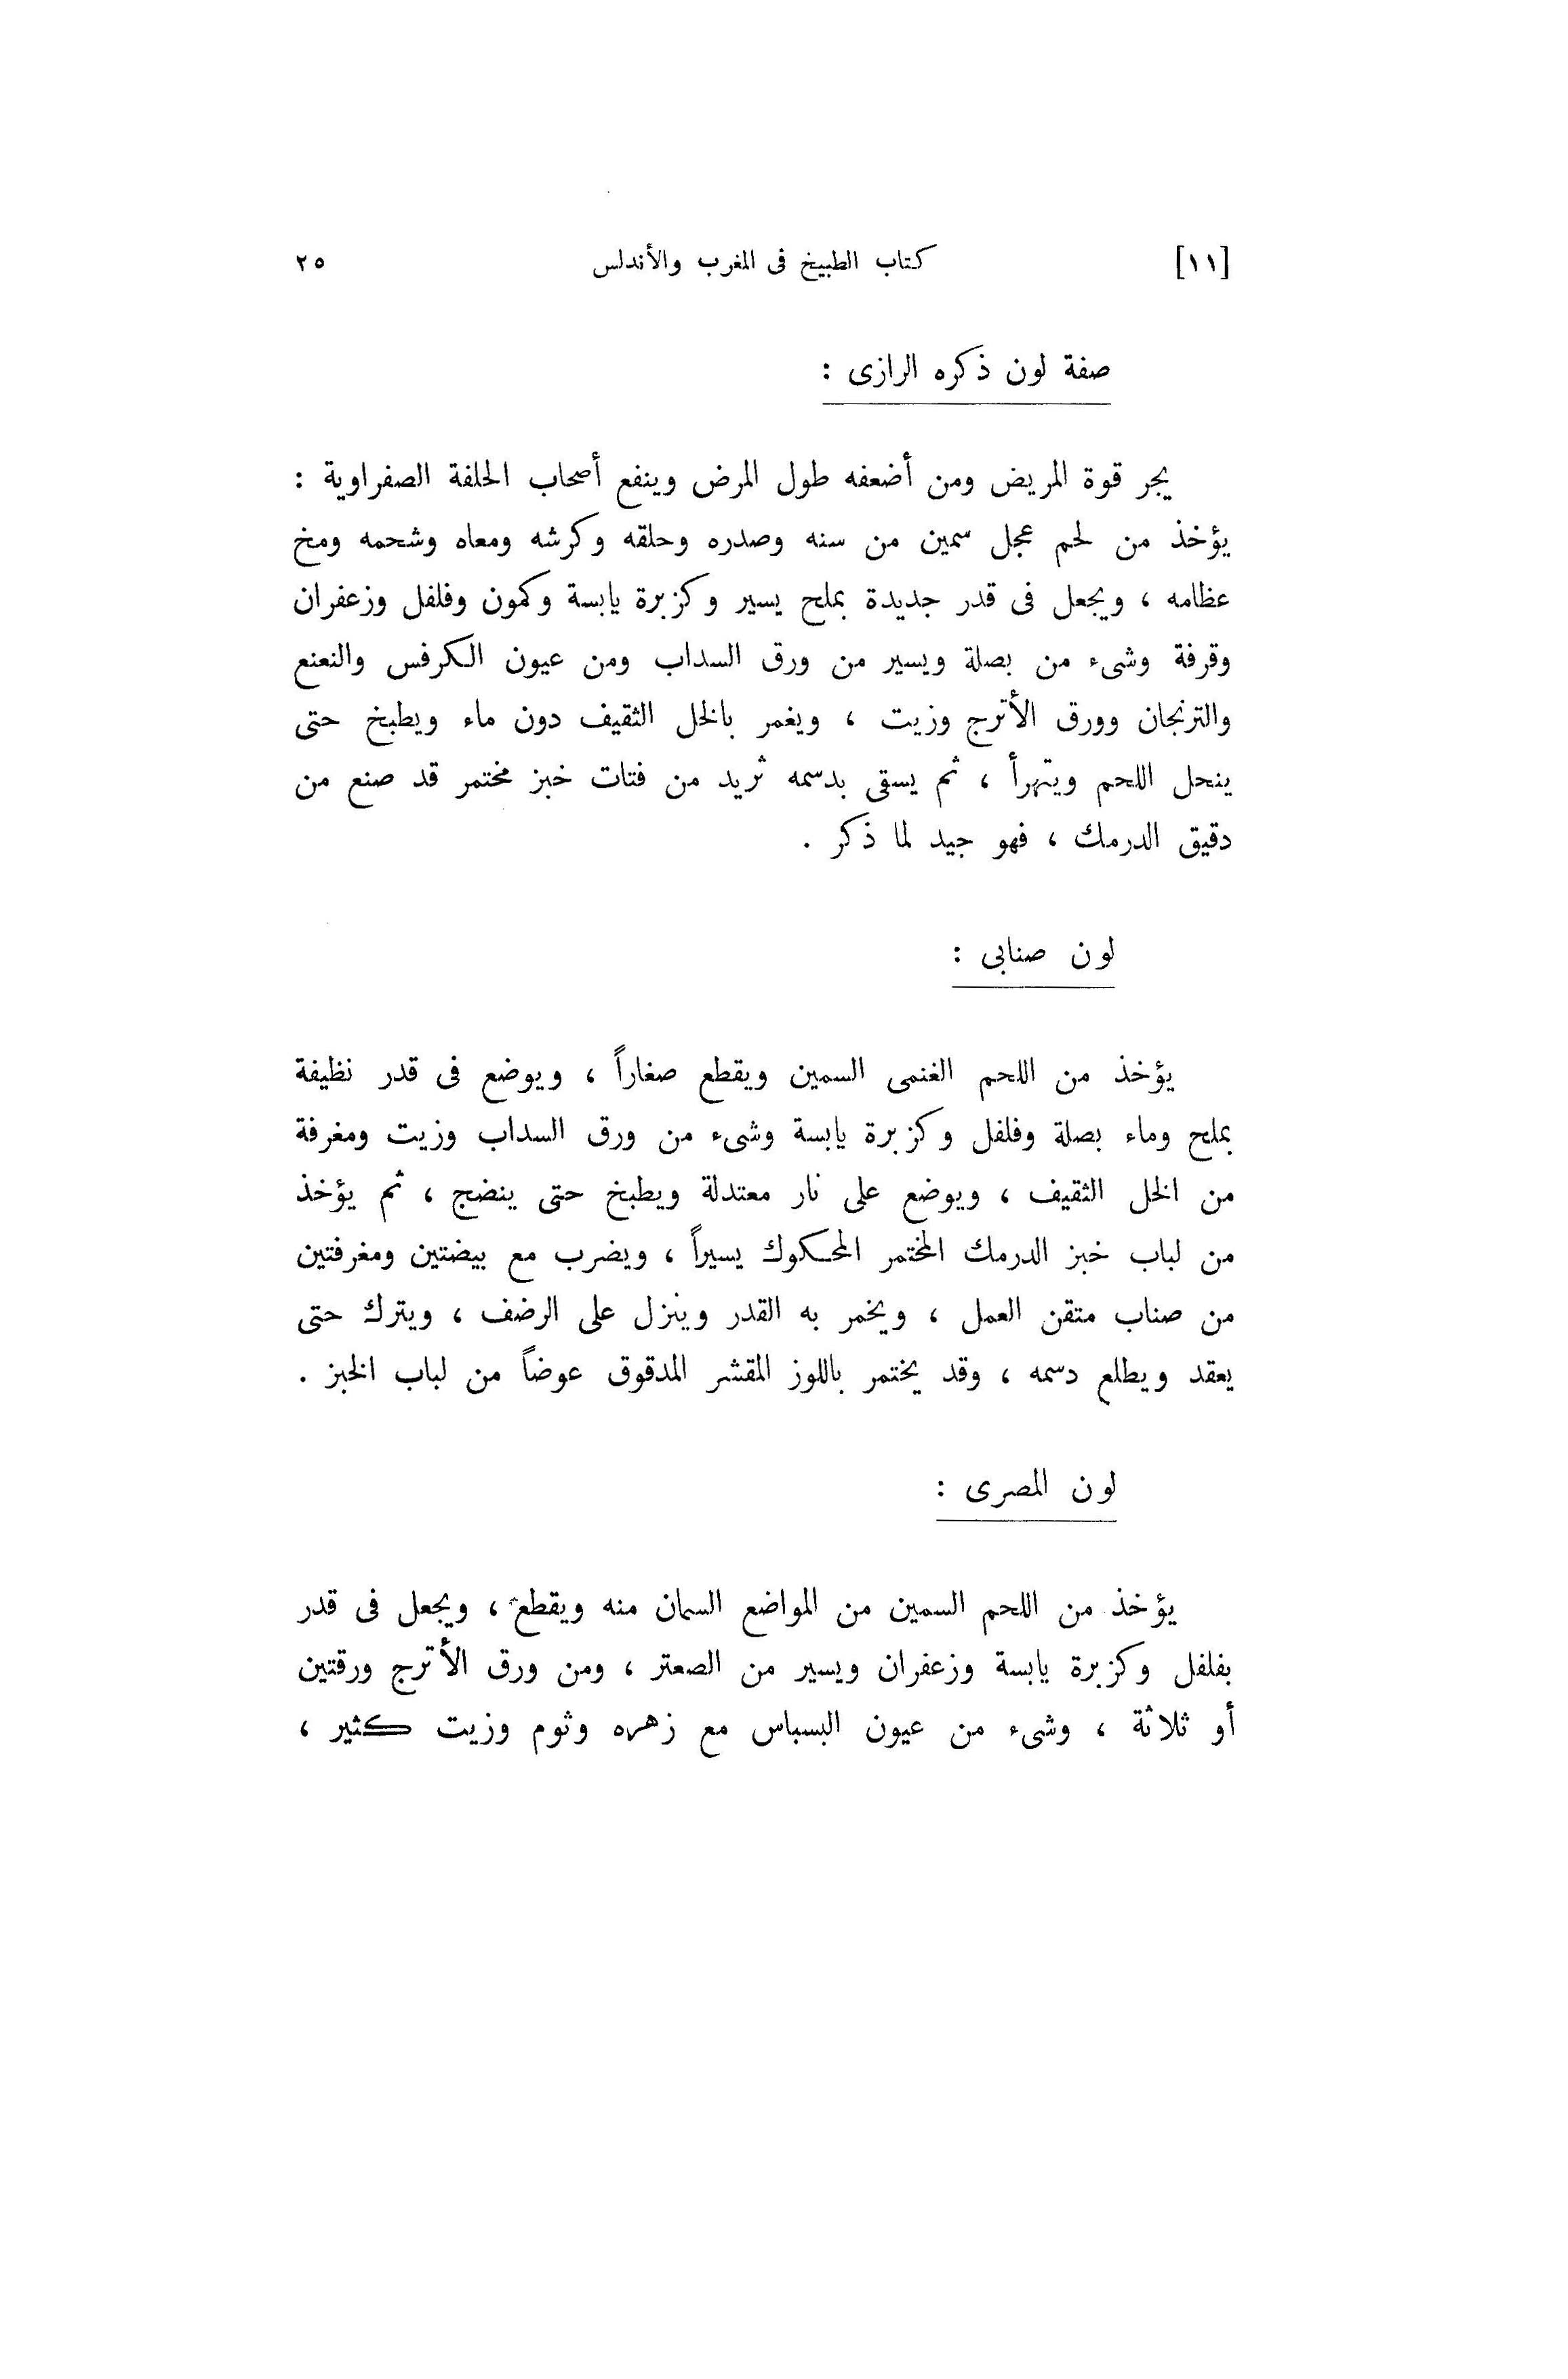 [١١] كتاب الطبيخ فى المغرب والأندلس ٢٥
صفة لون ذكره الرازى :
يجر قوة المريض ومن أضعفه طول المرض وينفع أصحاب الحلفة الصفراوية :
يؤخذ من لحم عجل سمين من سنه وصدره وحلقه وكرشه ومعاه وشحمه ومخ
عظامه ، ويجعل فى قدر جديدة بملح يسير وكزبرة يابسة وكمون وفلفل وزعفران
وقرفة وشىء من بصلة ويسير من ورق السداب ومن عيون الكرفس والنعنع
والترنجان وورق الأترج وزيت ، ويغمر بالخل الثقيف دون ماء ويطبخ حتى
ينحل اللحم ويتهرأ ، ثم يسقى بدسمه ثريد من فتات خبز مختمر قد صنع من
دقيق الدرمك ، فهو جيد لما ذكر .
لون صنابى :
يؤخذ من اللحم الغنمى السمين ويقطع صغاراً ، ويوضع فى قدر نظيفة
بملح وماء بصلة وفلفل وكزبرة يابسة وشىء من ورق السداب وزيت ومغرفة
من الخل الثقيف ، ويوضع على نار معتدلة ويطبخ حتى ينضج ، ثم يؤخذ
من لباب خبز الدرمك المختمر المحكوك يسيراً ، ويضرب مع بيضتين ومغرفتين
من صناب متقن العمل ، ويخمر به القدر وينزل على الرضف ، ويترك حتى
يعقد ويطلع دسمه ، وقد يختمر باللوز المقشر المدقوق عوضاً من لباب الخبز .
لون المصرى :
يؤخذ من اللحم السمين من المواضع السمان منه ويقطع ، ويجعل فى قدر
بفلفل وكزبرة يابسة وزعفران ويسير من الصعتر ، ومن ورق الأترج ورقتين
أو ثلاثة ، وشىء من عيون البسباس مع زهره وثوم وزيت كثير ،